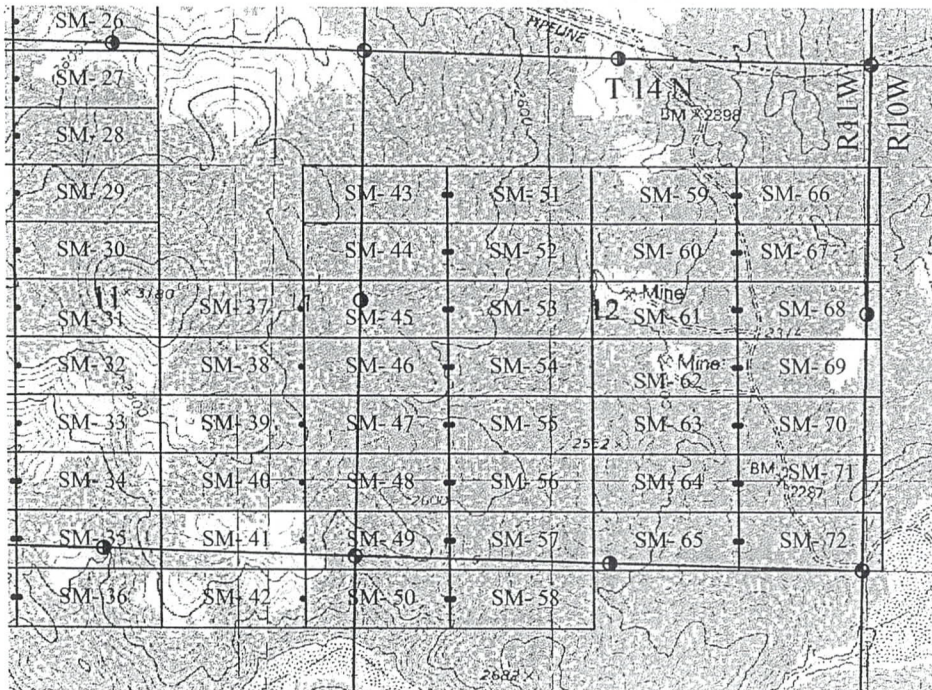 SM- 26
PIPELINE
SM- 27
2600
T 14 N
BM × 2398
R11W
R10W
SM- 28
SM- 29 SM- 43 SM- 51 SM- 59 SM- 66
SM- 30 SM- 44 SM- 52 SM- 60 SM- 67
11 × 3180 SM- 37 12 Mine
SM- 31 SM- 45 SM- 53 SM- 61 SM- 68
SM- 32 SM- 38 SM- 46 SM- 54 Mine SM- 69
SM- 62
SM- 33 SM- 39 SM- 47 SM- 55 SM- 63 SM- 70
2552 ×
SM- 34 SM- 40 SM- 48 SM- 56 SM- 64 BM SM- 71
2600 × 2287
SM- 35 SM- 41 SM- 49 SM- 57 SM- 65 SM- 72
SM- 36 SM- 42 SM- 50 SM- 58
2682 ×